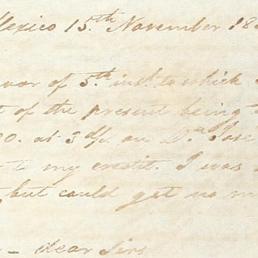 Mexico 15th November 18
vor of 5th inst. to which
t of the present being
0. at 3 d/. on Dn. Jose
t to my credit. I was
but could get no m
dear Sirs